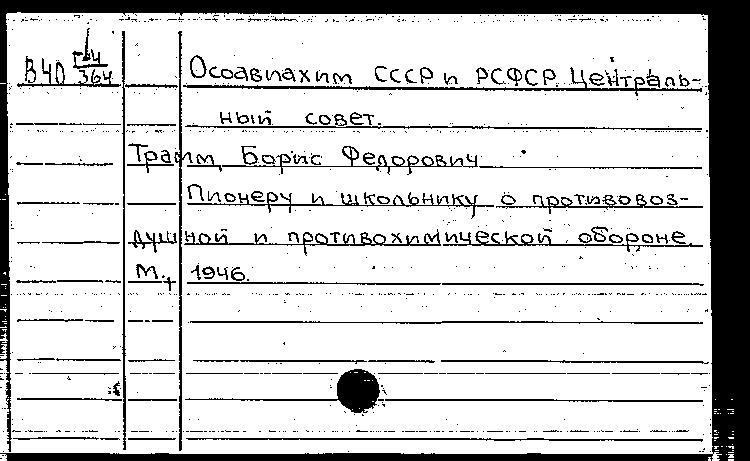 В40 364 Осоавиахим СССР и РСФСР. Централь-
ный совет.
Трамм, Борис Федорович
Пионеру и школьнику о противовоз-
душной и противохимической обороне.
М., 1946.